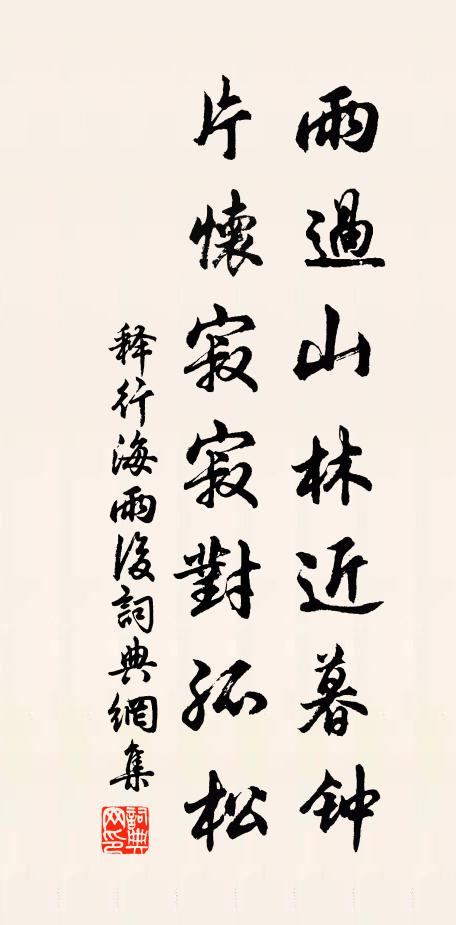 雨過山林近暮钟
片懷寂寂對孤松
释行海雨後詞典網集
詞典网印